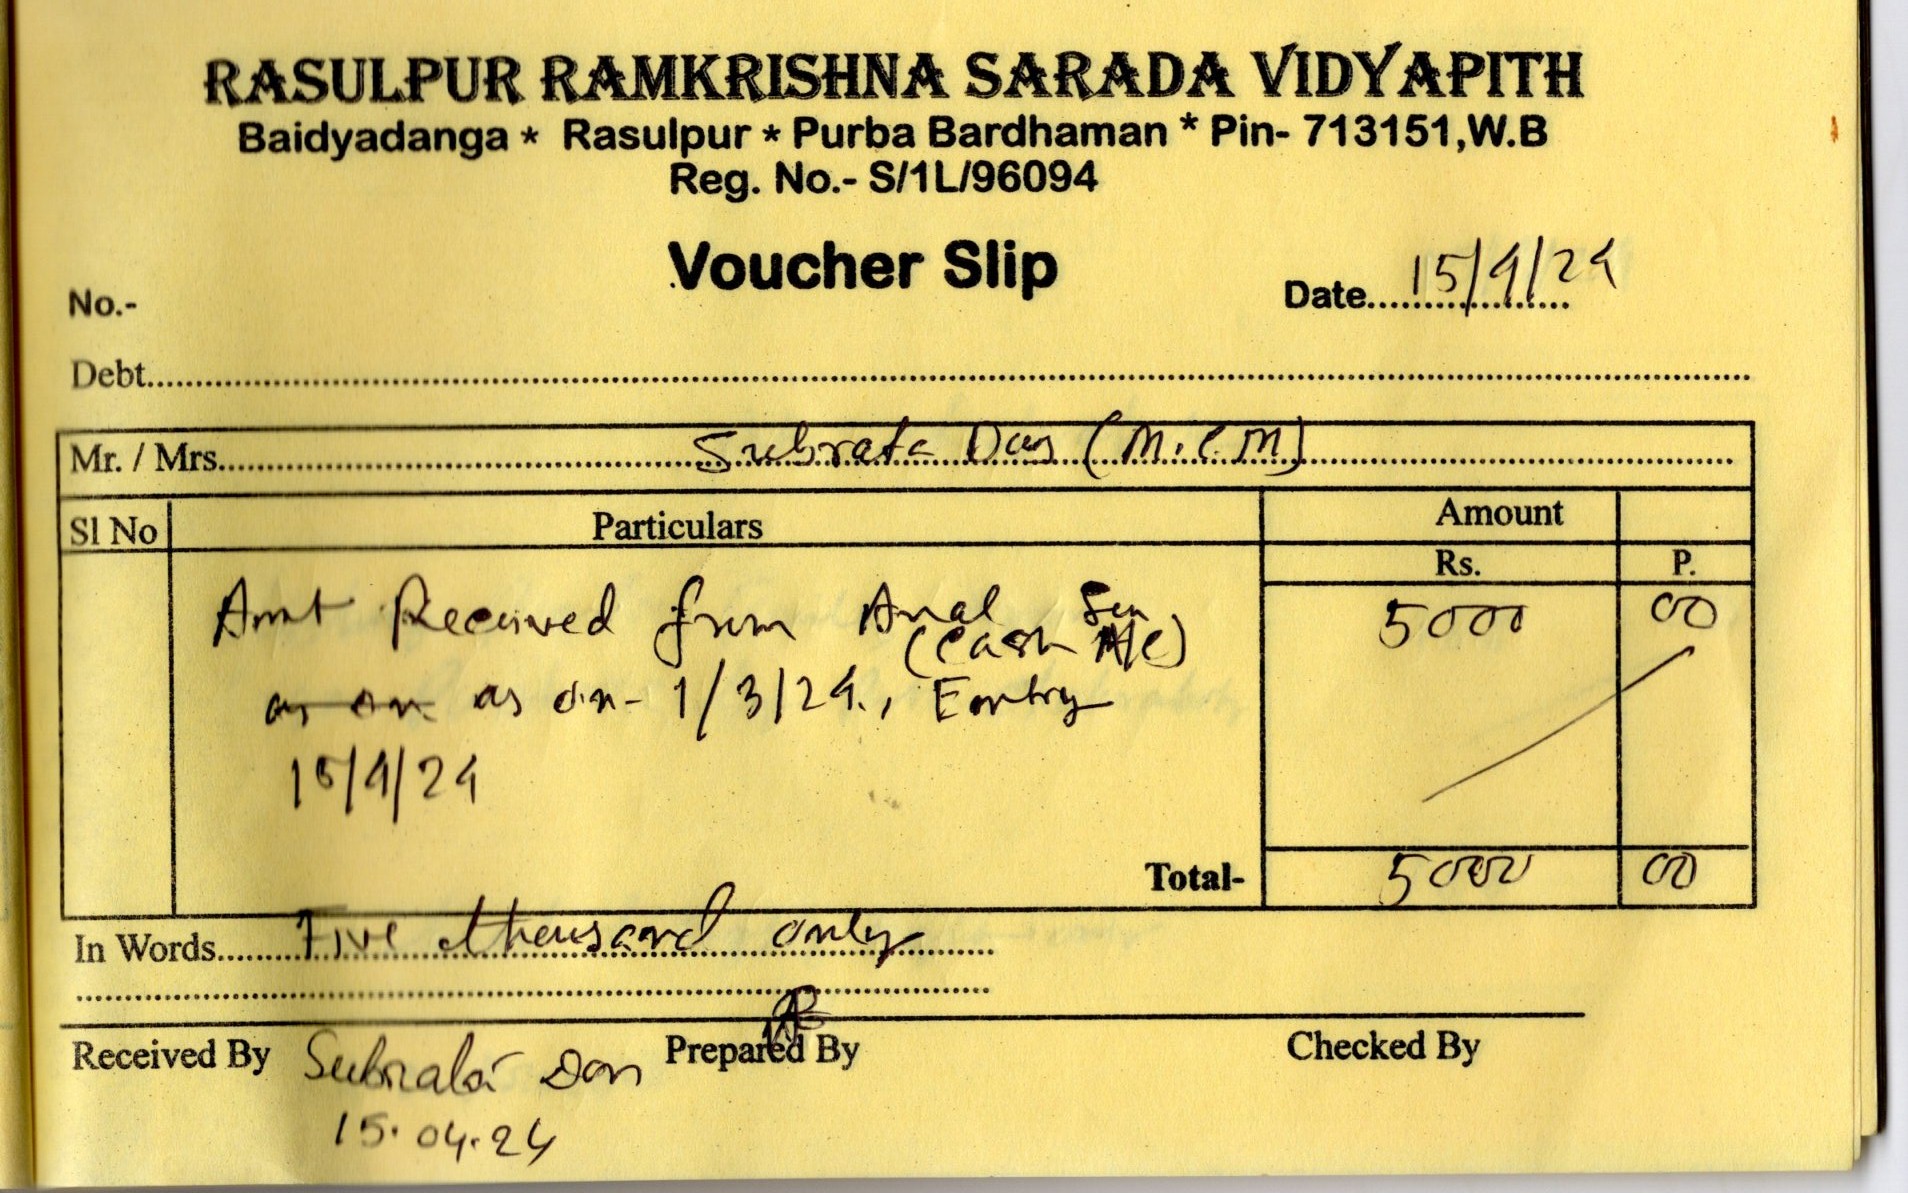 RASULPUR RAMKRISHNA SARADA VIDYAPITH
Baidyadanga * Rasulpur * Purba Bardhaman * Pin- 713151,W.B
Reg. No.- S/1L/96094
Voucher Slip
No.-
Date 15/4/24
Debt
Mr. / Mrs. Subrata Das (M.C.M)
Sl No Particulars Amount
Rs. P.
Amt Received from Amal Sen 5000 00
(Cash A/C)
as on as on- 1/3/24., Entry
15/4/24
Total- 5000 00
In Words Five thousand only
Received By Subrata Das Prepared By Checked By
15.04.24